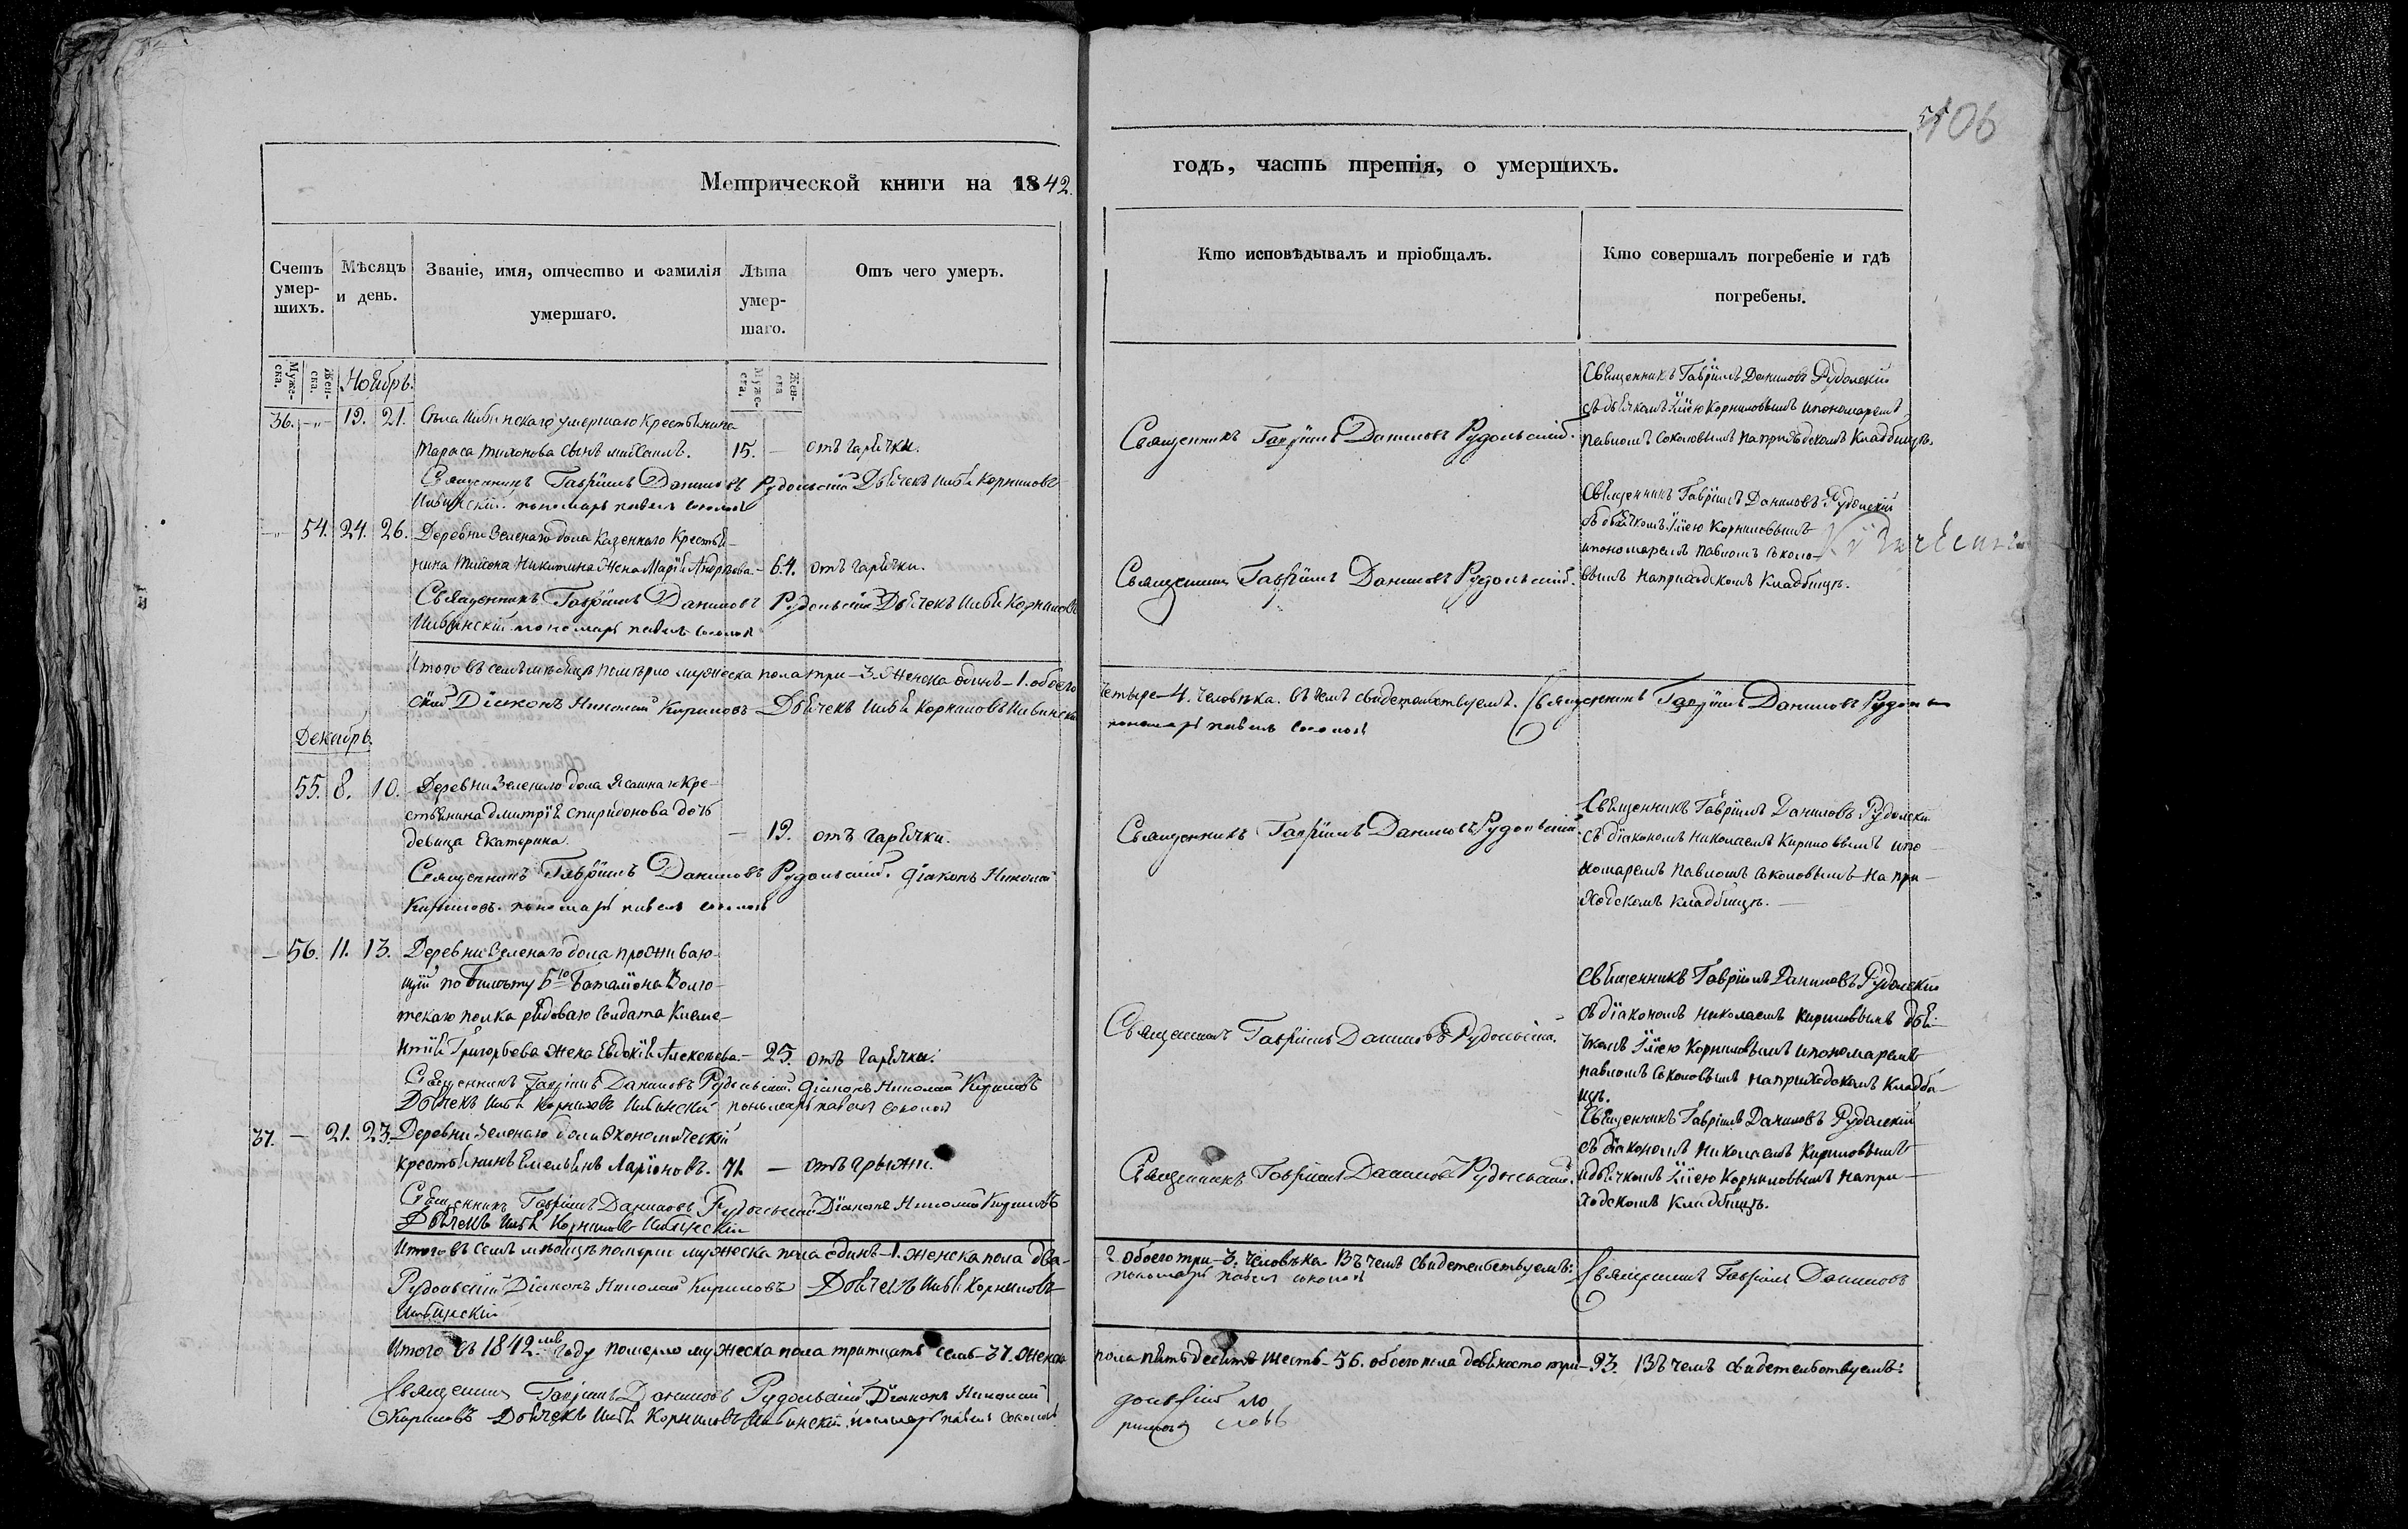 106
Метрической книги на 1842.
годъ, часть третія, о умершихъ.
Счетъ умер-шихъ.
Мѣсяцъ и день.
Званіе, имя, отчество и фамилія умершаго.
Лѣта умер-шаго.
Отъ чего умеръ.
Кто исповѣдывалъ и пріобщалъ.
Кто совершалъ погребеніе и гдѣ погребены.
Муже-ска.
Жен-ска.
Муже-ска.
Жен-ска
Ноябрь.
36. 19. 21. Села умершаго крестьянина
Тараса сынъ 15. — отъ горячки.
Священникъ Гавріилъ Даниловъ Рудольскій Дьячекъ Илья Корниловъ
пономарь Павелъ Соколовъ
Священникъ Гавріилъ Даниловъ Рудольскій.
Священникъ Гавріилъ Даниловъ Рудольскій
съ дьячкомъ Ильею Корниловымъ и пономаремъ
Павломъ Соколовымъ на приходскомъ кладбищѣ.
54. 24. 26. Деревни Зеленаго дола казеннаго крестья-
нина Никитина жена Марія Андреева — 64. отъ горячки.
Священникъ Гавріилъ Даниловъ Рудольскій Дьячекъ Илья Корниловъ
пономарь Павелъ Соколовъ
Священникъ Гавріилъ Даниловъ Рудольскій.
Священникъ Гавріилъ Даниловъ Рудольскій
съ дьячкомъ Ильею Корниловымъ
и пономаремъ Павломъ Соколо-
вымъ на приходскомъ кладбищѣ.
Итого въ семъ мѣсяцѣ померло мужеска пола три — 3. женска одинъ — 1. обоего
четыре — 4. человѣка. въ чемъ свидетельствуемъ. Священникъ Гавріилъ Даниловъ Рудоль
скій Діаконъ Николай Кириловъ Дьячекъ Илья Корниловъ
пономарь Павелъ Соколовъ
Декабрь.
55. 8. 10. Деревни Зеленаго дола Ясашнаго Кре-
стьянина Дмитрія Спиридонова дочь
девица Екатерина. — 19. отъ горячки.
Священникъ Гавріилъ Даниловъ Рудольскій. Діаконъ Николай
Кириловъ. пономарь Павелъ Соколовъ
Священникъ Гавріилъ Даниловъ Рудольскій
Священникъ Гавріилъ Даниловъ Рудольскій
съ діакономъ Николаемъ Кириловымъ и по-
номаремъ Павломъ Соколовымъ на при-
ходскомъ кладбищѣ.
— 56. 11. 13. Деревни Зеленаго дола проживаю-
щій по билѣту 5го баталіона
полка рядоваго солдата Климе-
нтія Григорьева жена Евдокія Алексѣева — 25. отъ горячки.
Священникъ Гавріилъ Даниловъ Рудольскій. Діаконъ Николай Кириловъ
Дьячекъ Илья Корниловъ пономарь Павелъ Соколовъ
Священникъ Гавріилъ Даниловъ Рудольскій.
Священникъ Гавріилъ Даниловъ Рудольскій
съ діакономъ Николаемъ Кириловымъ дья-
чкомъ Ильею Корниловымъ и пономаремъ
Павломъ Соколовымъ на приходскомъ кладби-
щѣ.
37. — 21. 23. Деревни Зеленаго дола Экономическій
крестьянинъ Емельянъ Ларіоновъ. 71. — отъ грыжи.
Священникъ Гавріилъ Даниловъ Рудольскій Діаконъ Николай Кириловъ
Дьячекъ Илья Корниловъ
Священникъ Гавріилъ Даниловъ Рудольскій.
Священникъ Гавріилъ Даниловъ Рудольскій
съ діакономъ Николаемъ Кириловымъ
и дьячкомъ Ильею Корниловымъ на при-
ходскомъ кладбищѣ.
Итого въ семъ мѣсяцѣ померли мужеска пола одинъ — 1. женска пола два —
2. обоего три — 3. человѣка. Въ чемъ свидетельствуемъ: Священникъ Гавріилъ Даниловъ
Рудольскій Діаконъ Николай Кириловъ Дьячекъ Илья Корниловъ
пономарь Павелъ Соколовъ
Итого въ 1842 году померло мужеска пола тритцать семь — 37. женска
пола пятьдесятъ шесть — 56. обоего пола девяносто три — 93. Въ чемъ свидетельствуемъ:
Священникъ Гавріилъ Даниловъ Рудольскій Діаконъ Николай
Кириловъ Дьячекъ Илья Корниловъ пономарь Павелъ Соколовъ